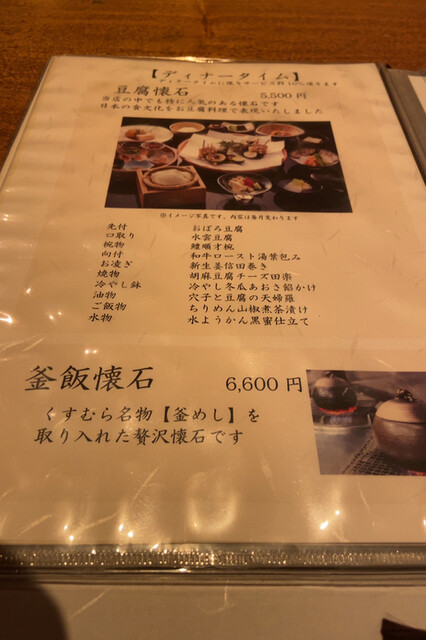 【ディナータイム】
ディナータイムに限りサービス料10%頂きます
豆腐懐石 5,500円
当店の中でも特に人気のある懐石です
日本の食文化をお豆腐料理で表現いたしました
※イメージ写真です。内容は毎月変わります
先付 おぼろ豆腐
口取り 水雲豆腐
椀物 鱧順才椀
向付 和牛ロースト湯葉包み
お凌ぎ 新生姜信田巻き
焼物 胡麻豆腐チーズ田楽
冷やし鉢 冷やし冬瓜あおさ餡かけ
油物 穴子と豆腐の天婦羅
ご飯物 ちりめん山椒煮茶漬け
水物 水ようかん黒蜜仕立て
釜飯懐石 6,600円
くすむら名物【釜めし】を
取り入れた贅沢懐石です